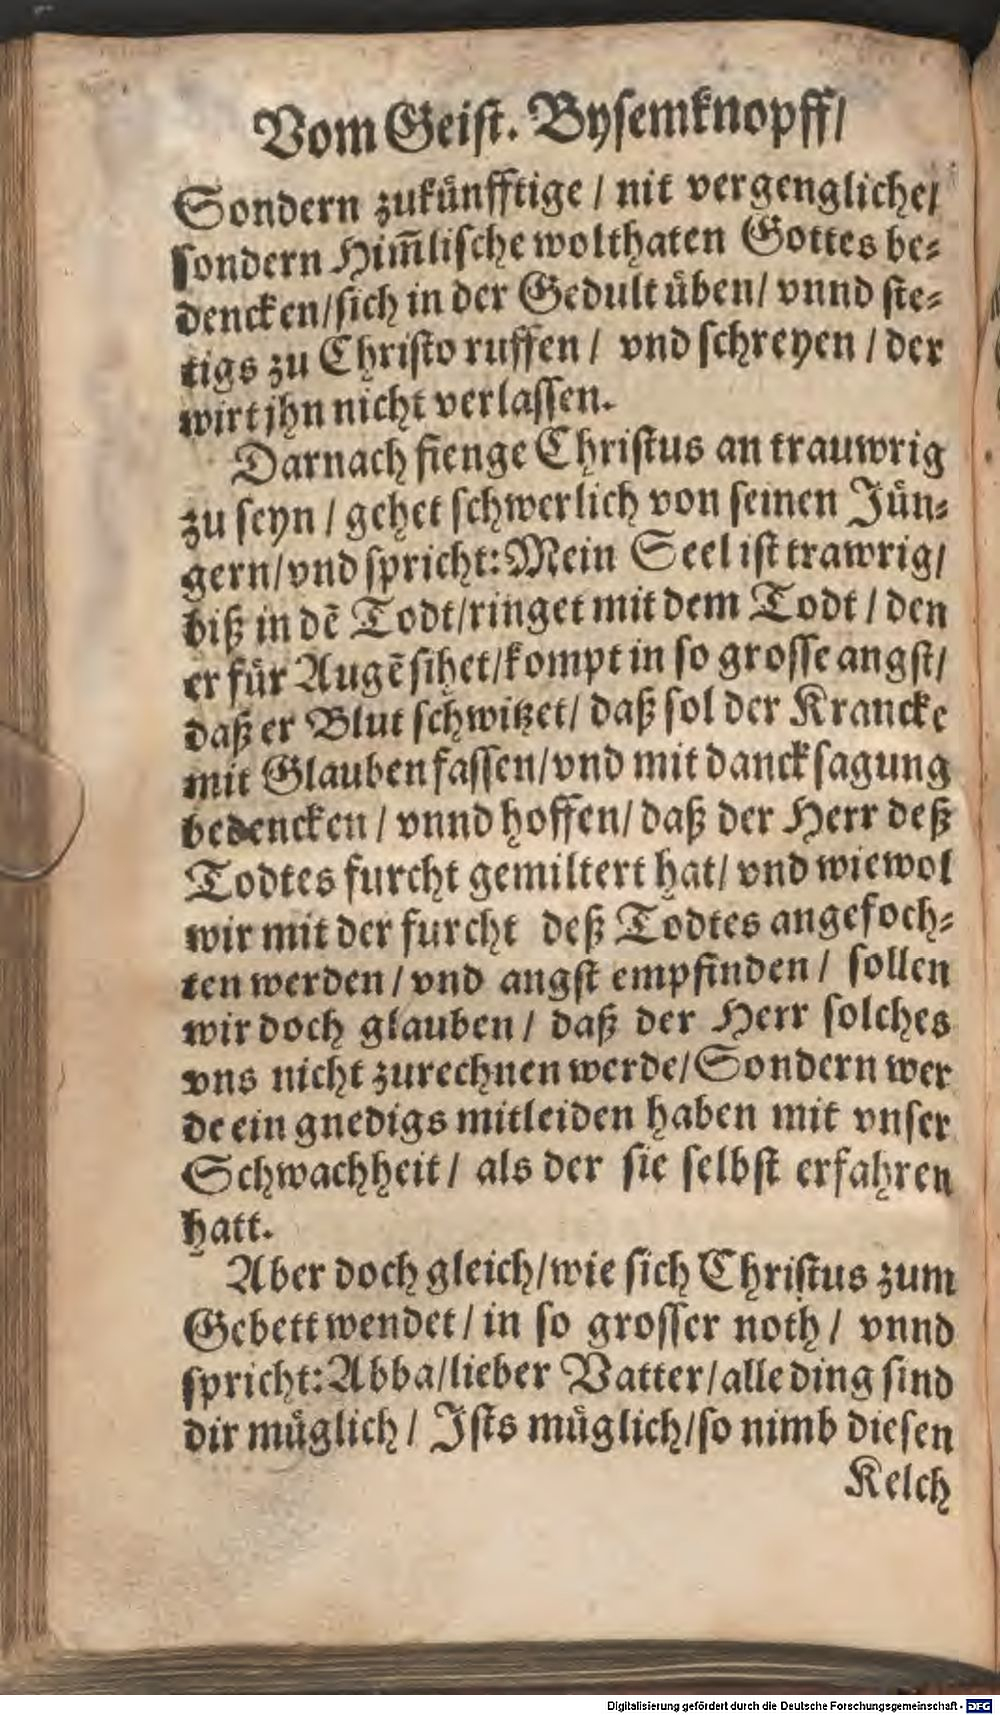 Vom Geist. Bysemknopff/
Sondern zukuͤnfftige / nit vergengliche/
sondern Him̃lische wolthaten Gottes be⸗
dencken/sich in der Gedult uͤben/ vnnd ste⸗
tigs zu Christo ruffen / vnd schreyen / der
wirt jhn nicht verlassen.
Darnach fienge Christus an trauwrig
zu seyn / gehet schwerlich von seinen Juͤn⸗
gern/vnd spricht: Mein Seel ist trawrig/
biß in dẽ Todt/ringet mit dem Todt / den
er fuͤr Augẽ sihet/kompt in so grosse angst/
daß er Blut schwitzet/ daß sol der Krancke
mit Glauben fassen/vnd mit dancksagung
bedencken / vnnd hoffen/ daß der Herr deß
Todtes furcht gemiltert hat/ vnd wiewol
wir mit der furcht deß Todtes angefoch⸗
ten werden / vnd angst empfinden / sollen
wir doch glauben / daß der Herr solches
vns nicht zurechnen werde/Sondern wer
de ein gnedigs mitleiden haben mit vnser
Schwachheit / als der sie selbst erfahren
hatt.
Aber doch gleich/wie sich Christus zum
Gebett wendet / in so grosser noth / vnnd
spricht: Abba/lieber Vatter/alle ding sind
dir muͤglich / Ists muͤglich/so nimb diesen
Kelch
Digitalisierung gefördert durch die Deutsche Forschungsgemeinschaft - DFG